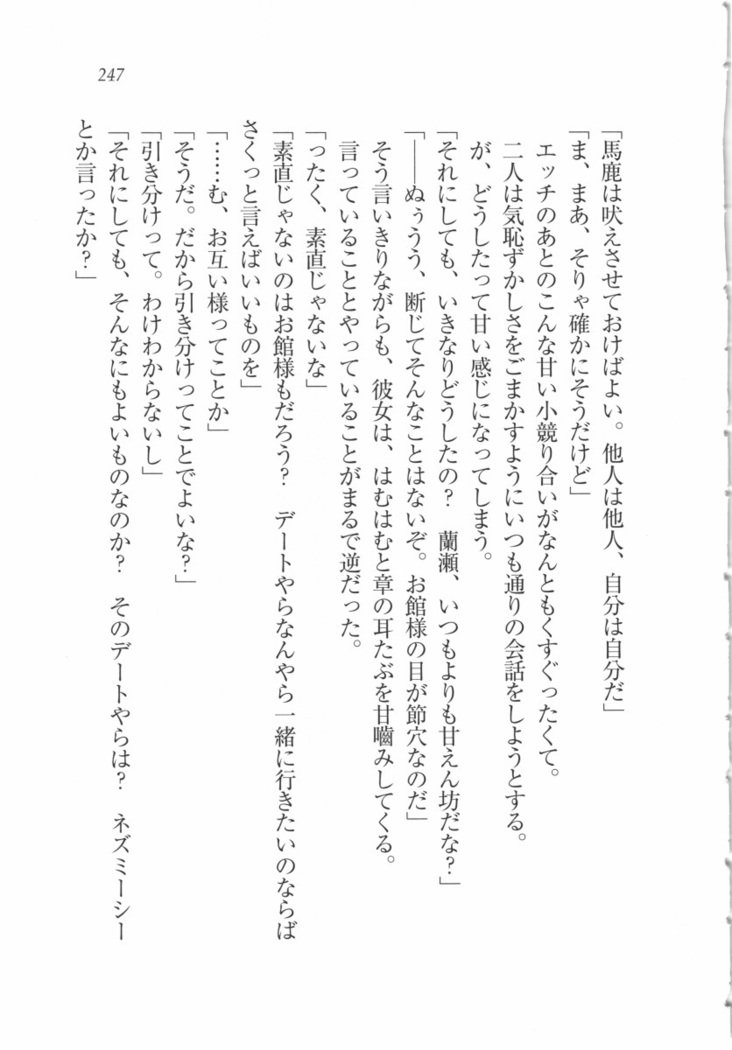 「馬鹿は吠えさせておけばよい。他人は他人、自分は自分だ」
「ま、まあ、そりゃ確かにそうだけど」
エッチのあとのこんな甘い小競り合いがなんともくすぐったくて。
二人は気恥ずかしさをごまかすようにいつも通りの会話をしようとする。
が、どうしたって甘い感じになってしまう。
「それにしても、いきなりどうしたの？　蘭瀬、いつもよりも甘えん坊だな？」
「――ぬぅうう、断じてそんなことはないぞ。お館様の目が節穴なのだ」
そう言いきりながらも、彼女は、はむはむと章の耳たぶを甘嚙みしてくる。
言っていることとやっていることがまるで逆だった。
「ったく、素直じゃないな」
「素直じゃないのはお館様もだろう？　デートやらなんやら一緒に行きたいのならば
さくっと言えばいいものを」
「……む、お互い様ってことか」
「そうだ。だから引き分けってことでよいな？」
「引き分けって。わけわからないし」
「それにしても、そんなにもよいものなのか？　そのデートやらは？　ネズミーシー
とか言ったか？」
247